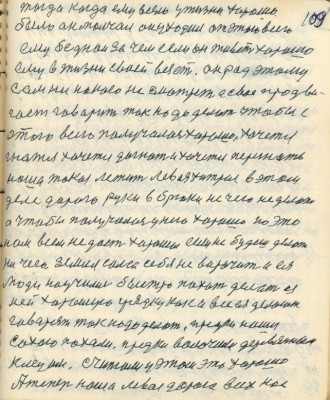 тогда когда ему было у жизни хорошо
было он молчал он уходил от этой всего
ему бедной за чем сели он живёт хорошо
ему в жизни своей везёт. он рад этому
сам ни накого не смотрит а своё продви-
гает говорит так надо делат чтобы с
этого всего получалось хорошо, хочети
гнатся хочети догнат и хочети перегнать
наша такая летит левая хитрая в этом
деле дорога руки в брюки не чего не делат
а чтобы получалось у него хорошо но это
нам всем не даст хорошо если не будем делат
ни чего, земля сама себя не ворочит и ея
люди научились быстро пахат делат с
ней хорошую грядку как и все ея делают
говорят так надо делат, предки наши
сохою пахали, предки волочили деревянным
считали у этом это хорошо
А теперь наша левая дорога всех нас
109